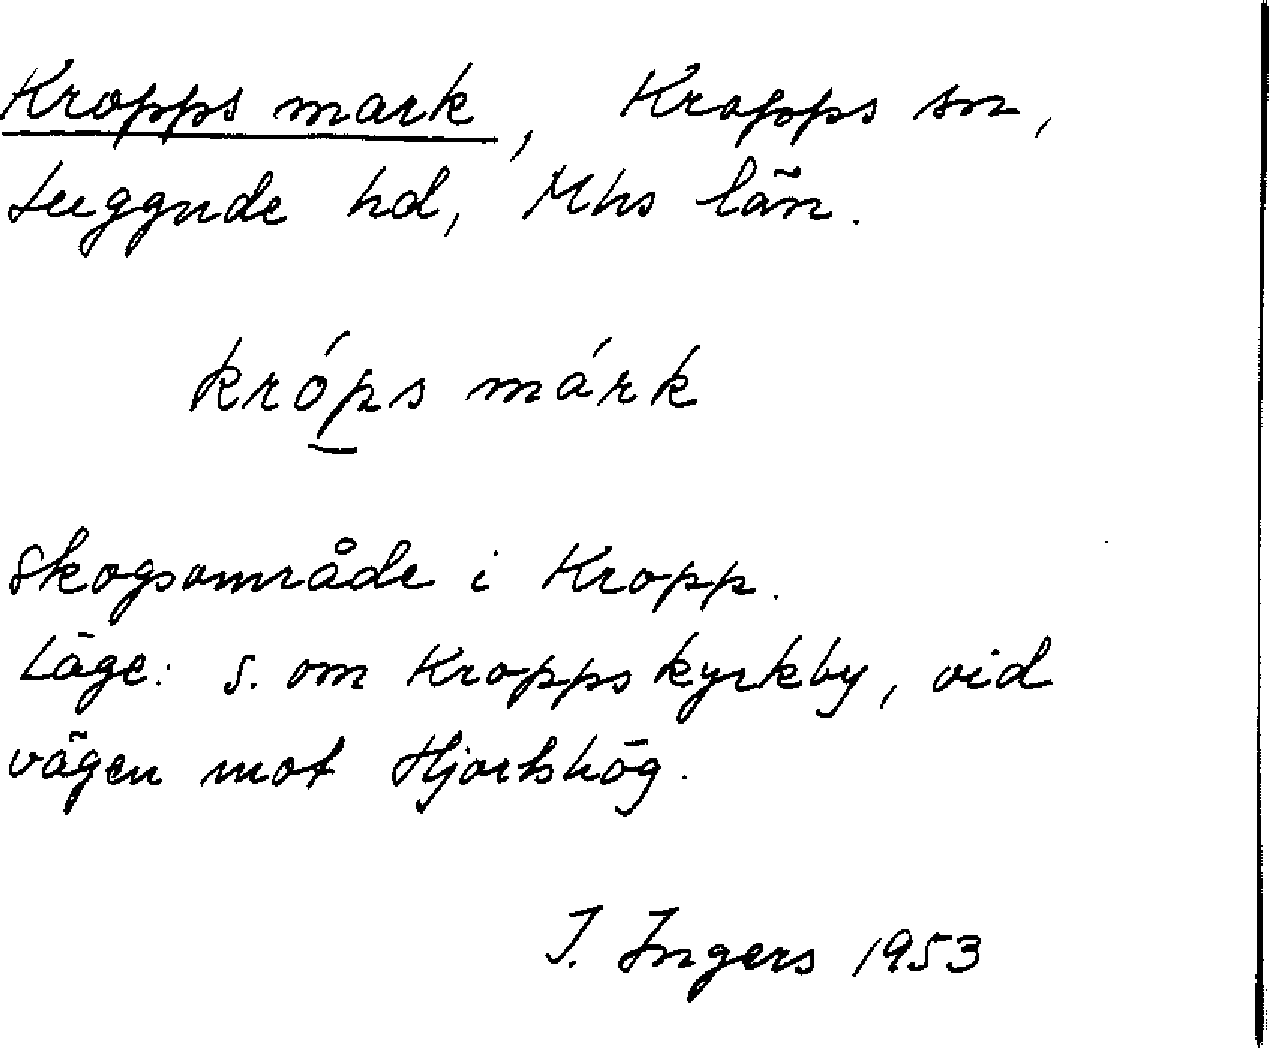 Kropps mark, Kropps sn,
Luggude hd, Mhs län.
króps márk
Skogsområde i Kropp.
Läge: S. om Kropps kyrkby, vid
vägen mot Hjortshög.
I. Ingers 1953